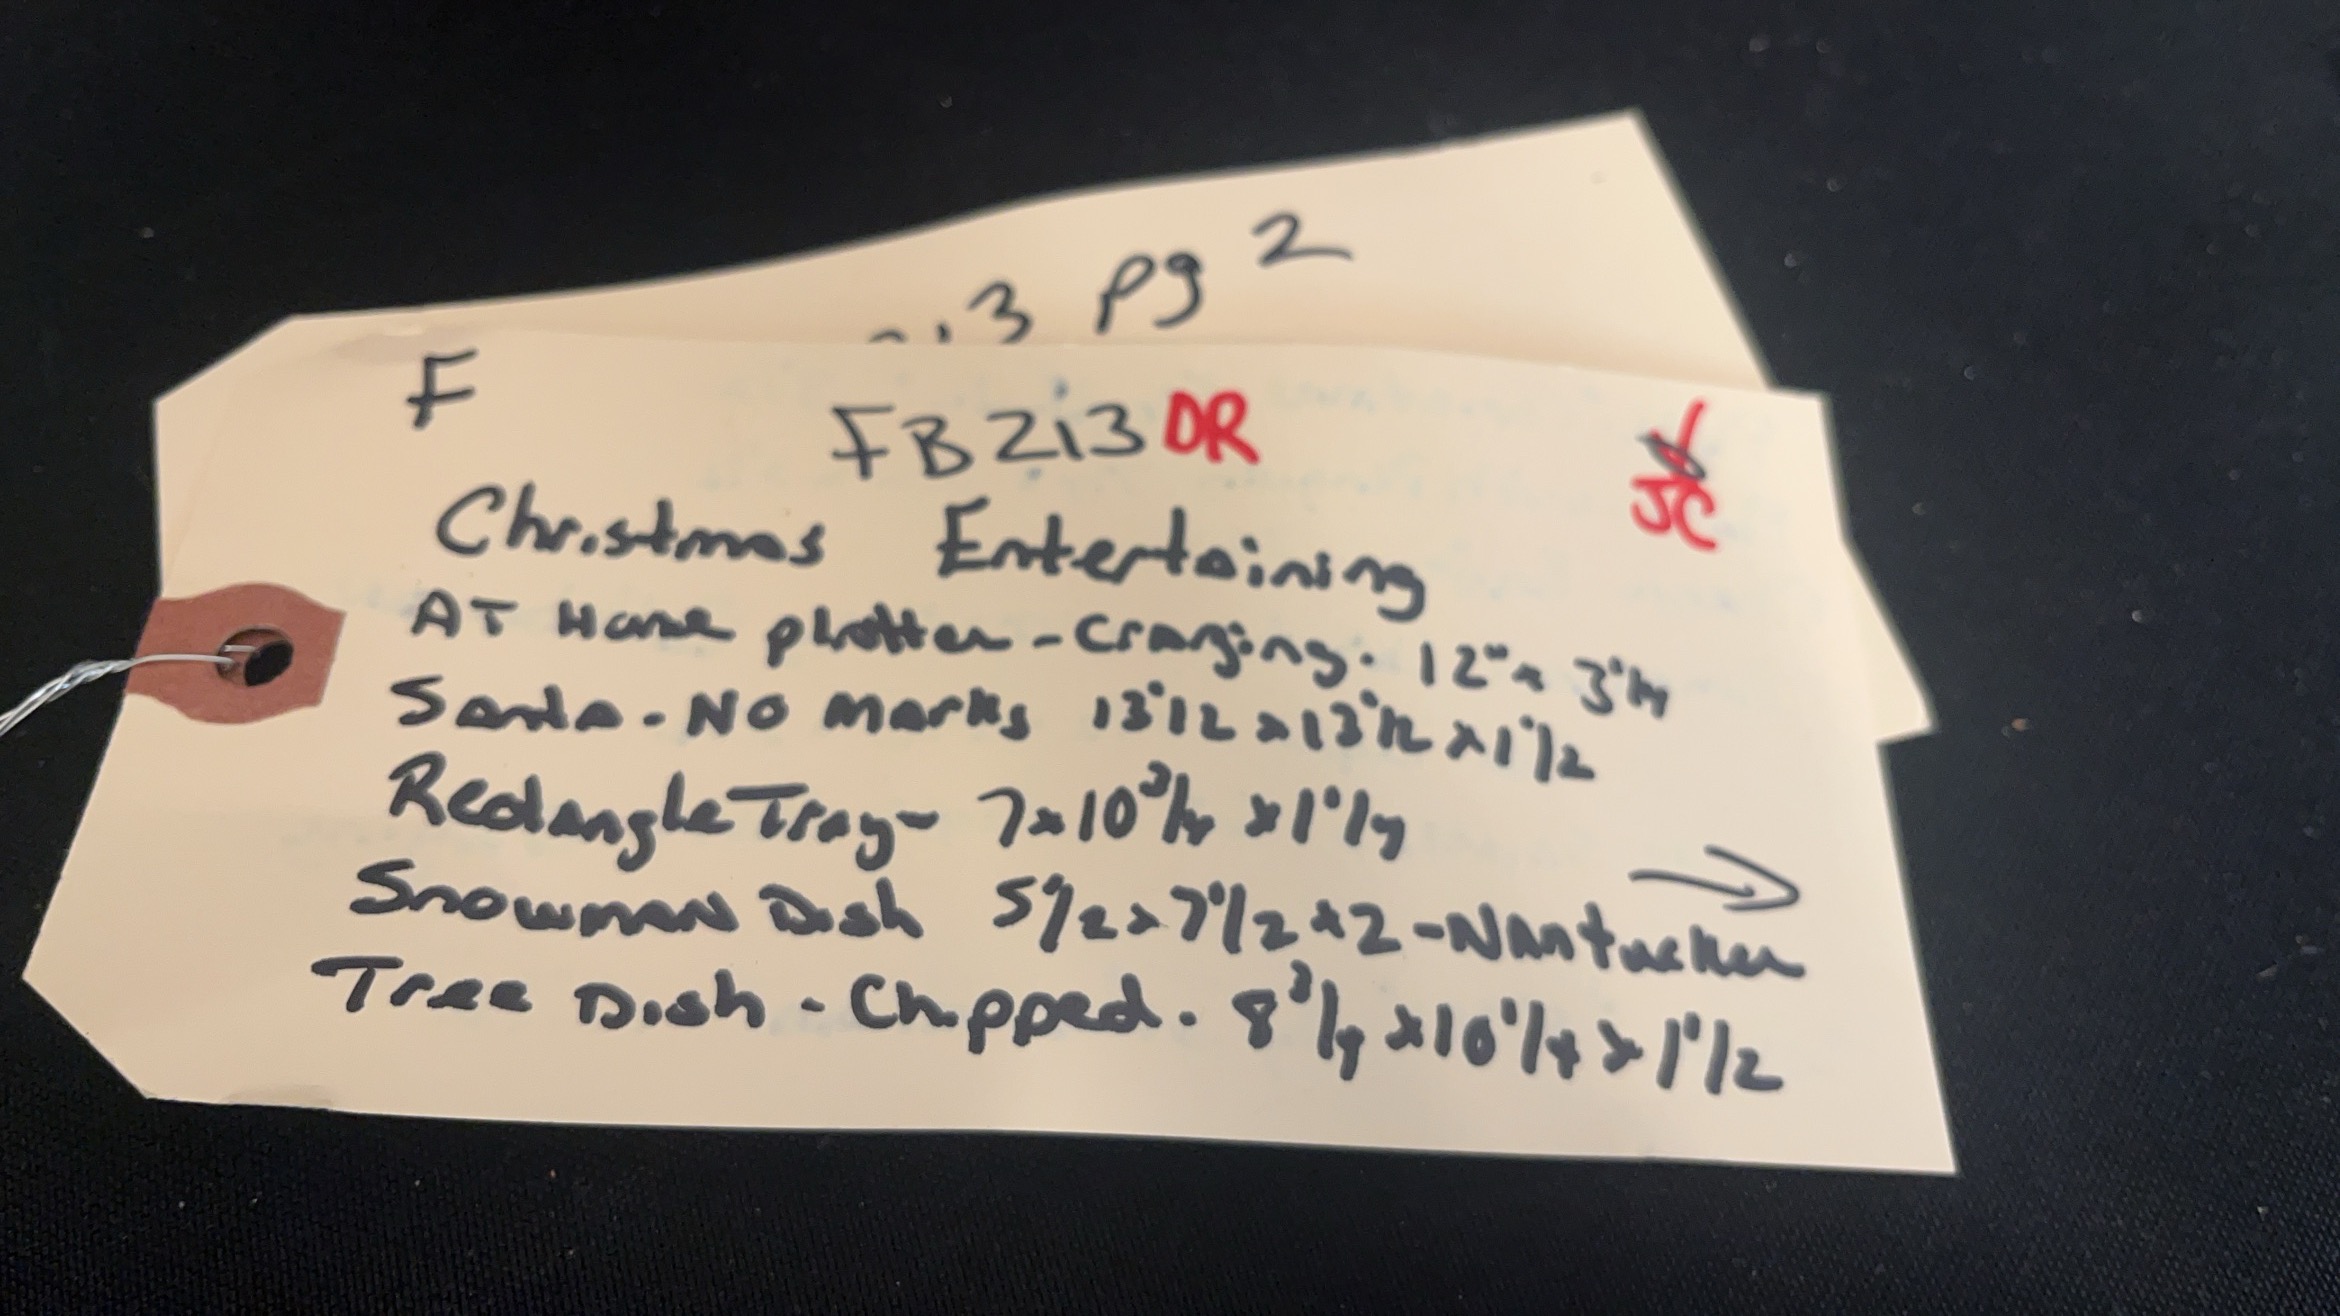 pg 2
F
FB213 DR
JC
Christmas Entertaining
AT Home platter - Crazing. 12" x 3 1/4
Santa - NO Marks 13 1/2 x 13 1/2 x 1 1/2
Rectangle Tray - 7 x 10 3/4 x 1 1/4
Snowman Dish 5 1/2 x 7 1/2 x 2 - Nantucker
Tree Dish - Chipped. 8 3/4 x 10 1/4 x 1 1/2